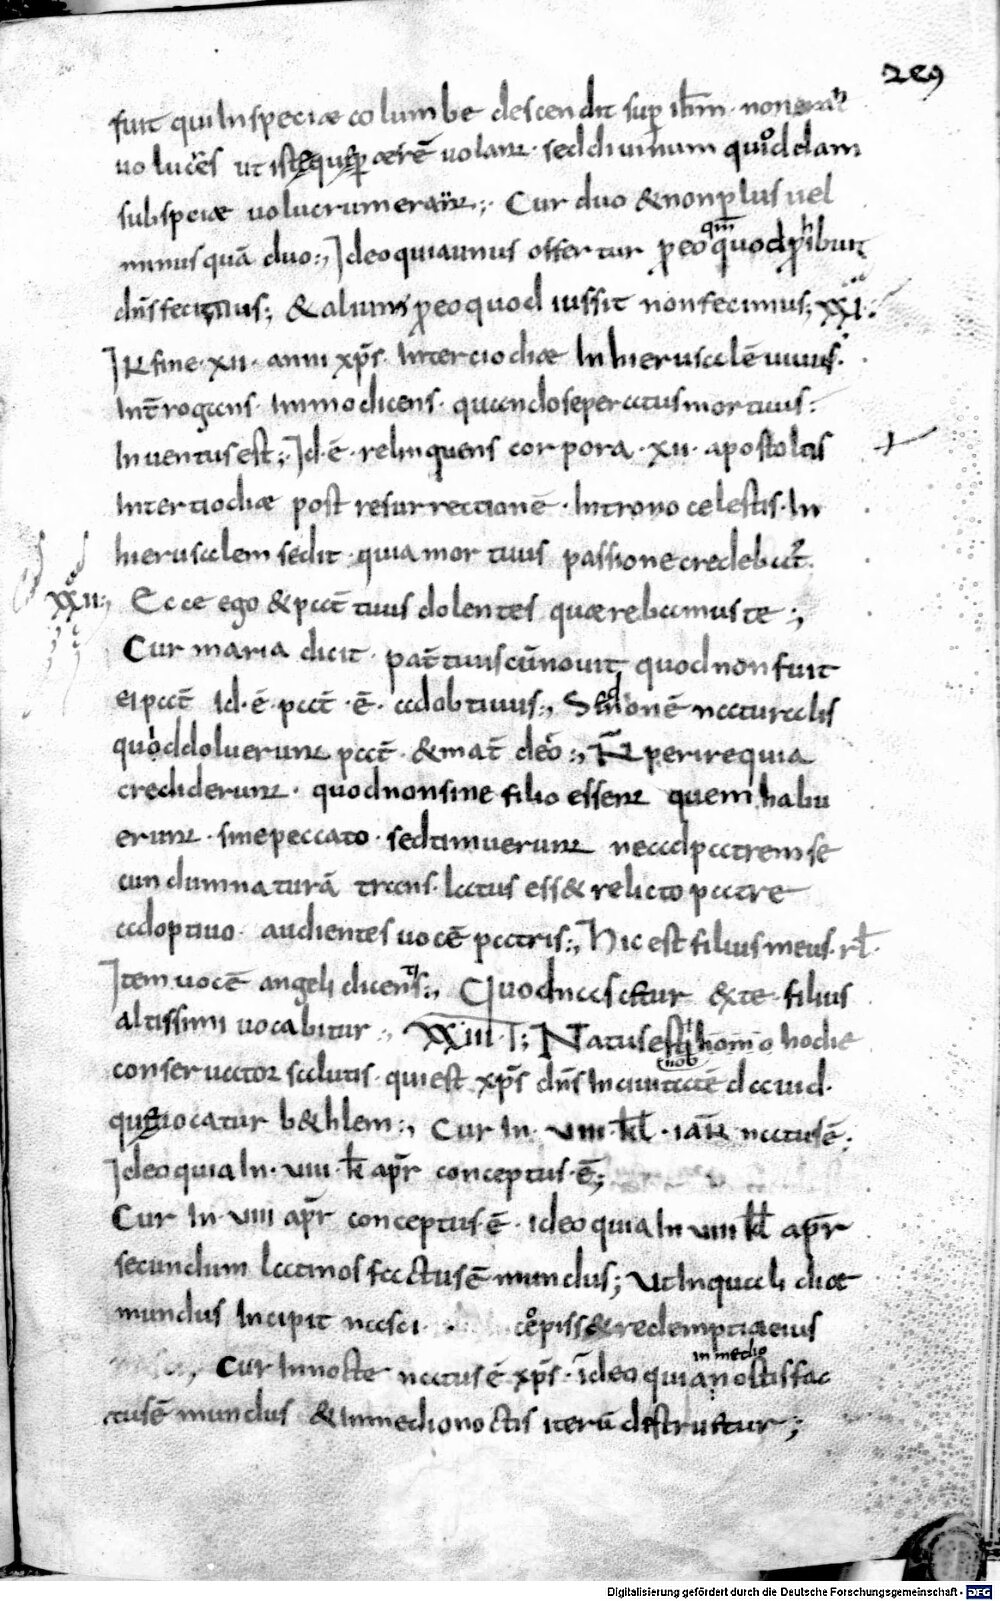 289
fuit qui In speciae columbe descendit sup ihm · non erat
uoluceis ut istequę p aerē uolant · sed diuinum quoddam
sub speciae uolucrum erant:, Cur duo & non plus uel
minus quā duo:, Ideo quia unus offertur p eo quod phibuit
qm
dns fecimus:, & alium p eo quod iussit non fecimus; XXI:
IR fine · xii · anni xps Inter ciodiae In hieruscalē uiuus:
Int̄rogans · Immo dicens · quando seperatus mortuus:
Inuentus est:, Id · ē · relinquens corpora · xii · apostolas
Intertiodiae post resurrectionē · Introno celestis · In
hieruscalem sedit · quia mortuus passione credebat
XXII:, Ecce ego & pat̄ tuus dolentes quaerebamus te:,
Cur maria dicit · pat̄ tuus cū nouit quod non fuit
ei pat̄ id · ē · pat̄ · ē · adobtiuus:, onē naturalis
quod doluerunt pat̄ · & mat̄ deo:, R perire quia
crediderunt · quod non sine filio essent quem habu
erunt · sine peccato · sed timuerunt ne ad patrem se
cundum naturā trans · latus ess& relicto patre
adoptiuo · audientes uocē patris:, Hic est filius meus · rl̄ ·
Item uocē angeli dicentis:, Quod nascetur ex te · filius
altissimi uocabitur:, XXIII · I; Natus est homo hodie
nob
conseruator salutis · qui est xps dns In ciuitatē dauid ·
quę uocatur b&hlem:, Cur In · uiii · kl · iaR natus ē:
Ideo quia In · uiii · k apr̄ conceptus · ē:,
Cur In · uiii apr̄ conceptus · ē · ideo quia In uiii kl apr̄
secundum latinos factus ē mundus; Ut In quali diae
mundus Incipit nasci · cepiss& redemptiae eius
Cur In nocte natus ē xps · ideo quia noctis fac
in medio
tus ē mundus & In medio noctis iterū destruetur;
Digitalisierung gefördert durch die Deutsche Forschungsgemeinschaft - DFG